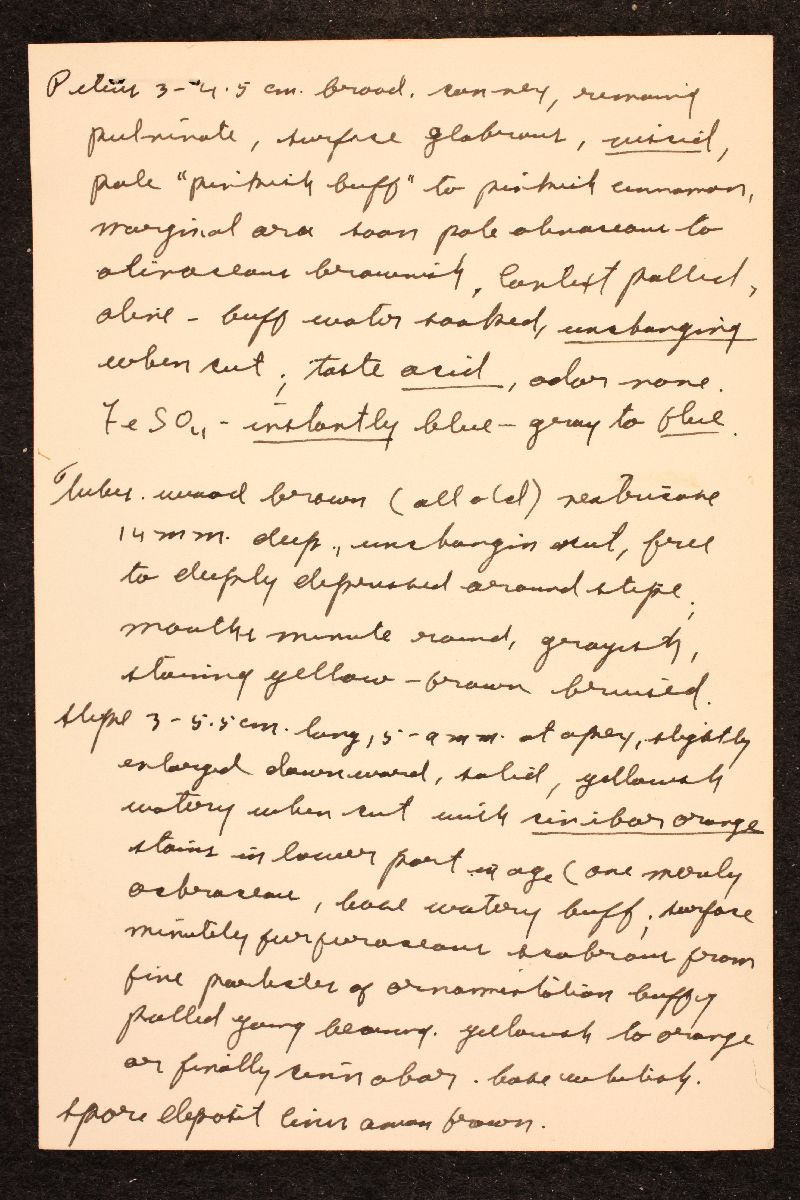 Pileus 3-4.5 cm. broad. convex, remaining
pulvinate, surface glabrous, viscid,
pale "pinkish buff" to pinkish cinnamon,
marginal area soon pale olivaceous to
olivaceous brownish. Context pallid,
olive-buff water soaked, unchanging
when cut; taste acid, odor none.
FeSO4 - instantly blue-gray to blue.
Tubes. wood brown (all old)
14 mm. deep., unchangin cut, free
to deeply depressed around stipe;
mouths minute round, grayish,
staining yellow-brown bruised.
Stipe 3-5.5 cm. long, 5-9 mm. at apex, slightly
enlarged downward, solid, yellowish
watery when cut with cinibar orange
stains in lower part in age (one merely
ochraceous, base watery buff; surface
minutely furfuraceous scabrous from
fine particles of ornamentation buffy
pallid young becoming. yellowish to orange
or finally cinnabar. base whitish.
Spore deposit cinnamon brown.